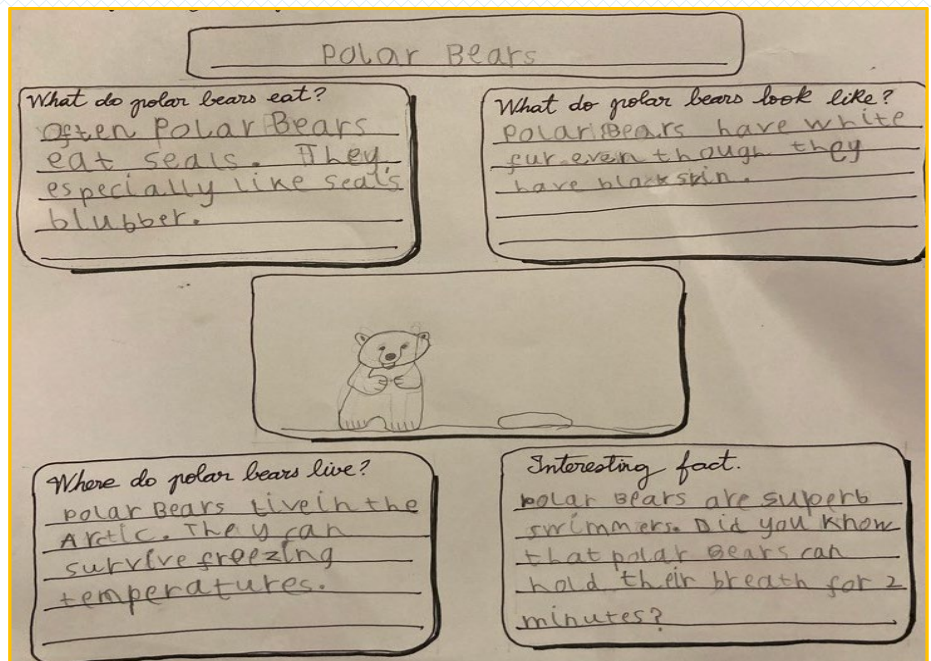 Polar Bears
What do polar bears eat?
Often Polar Bears
eat seals. They
especially like seal's
blubber.
What do polar bears look like?
Polar Bears have white
fur even though they
have black skin.
Where do polar bears live?
Polar Bears live in the
Artic. They can
survive freezing
temperatures.
Interesting fact.
Polar Bears are superb
swimmers. Did you know
that polar Bears can
hold their breath for 2
minutes?